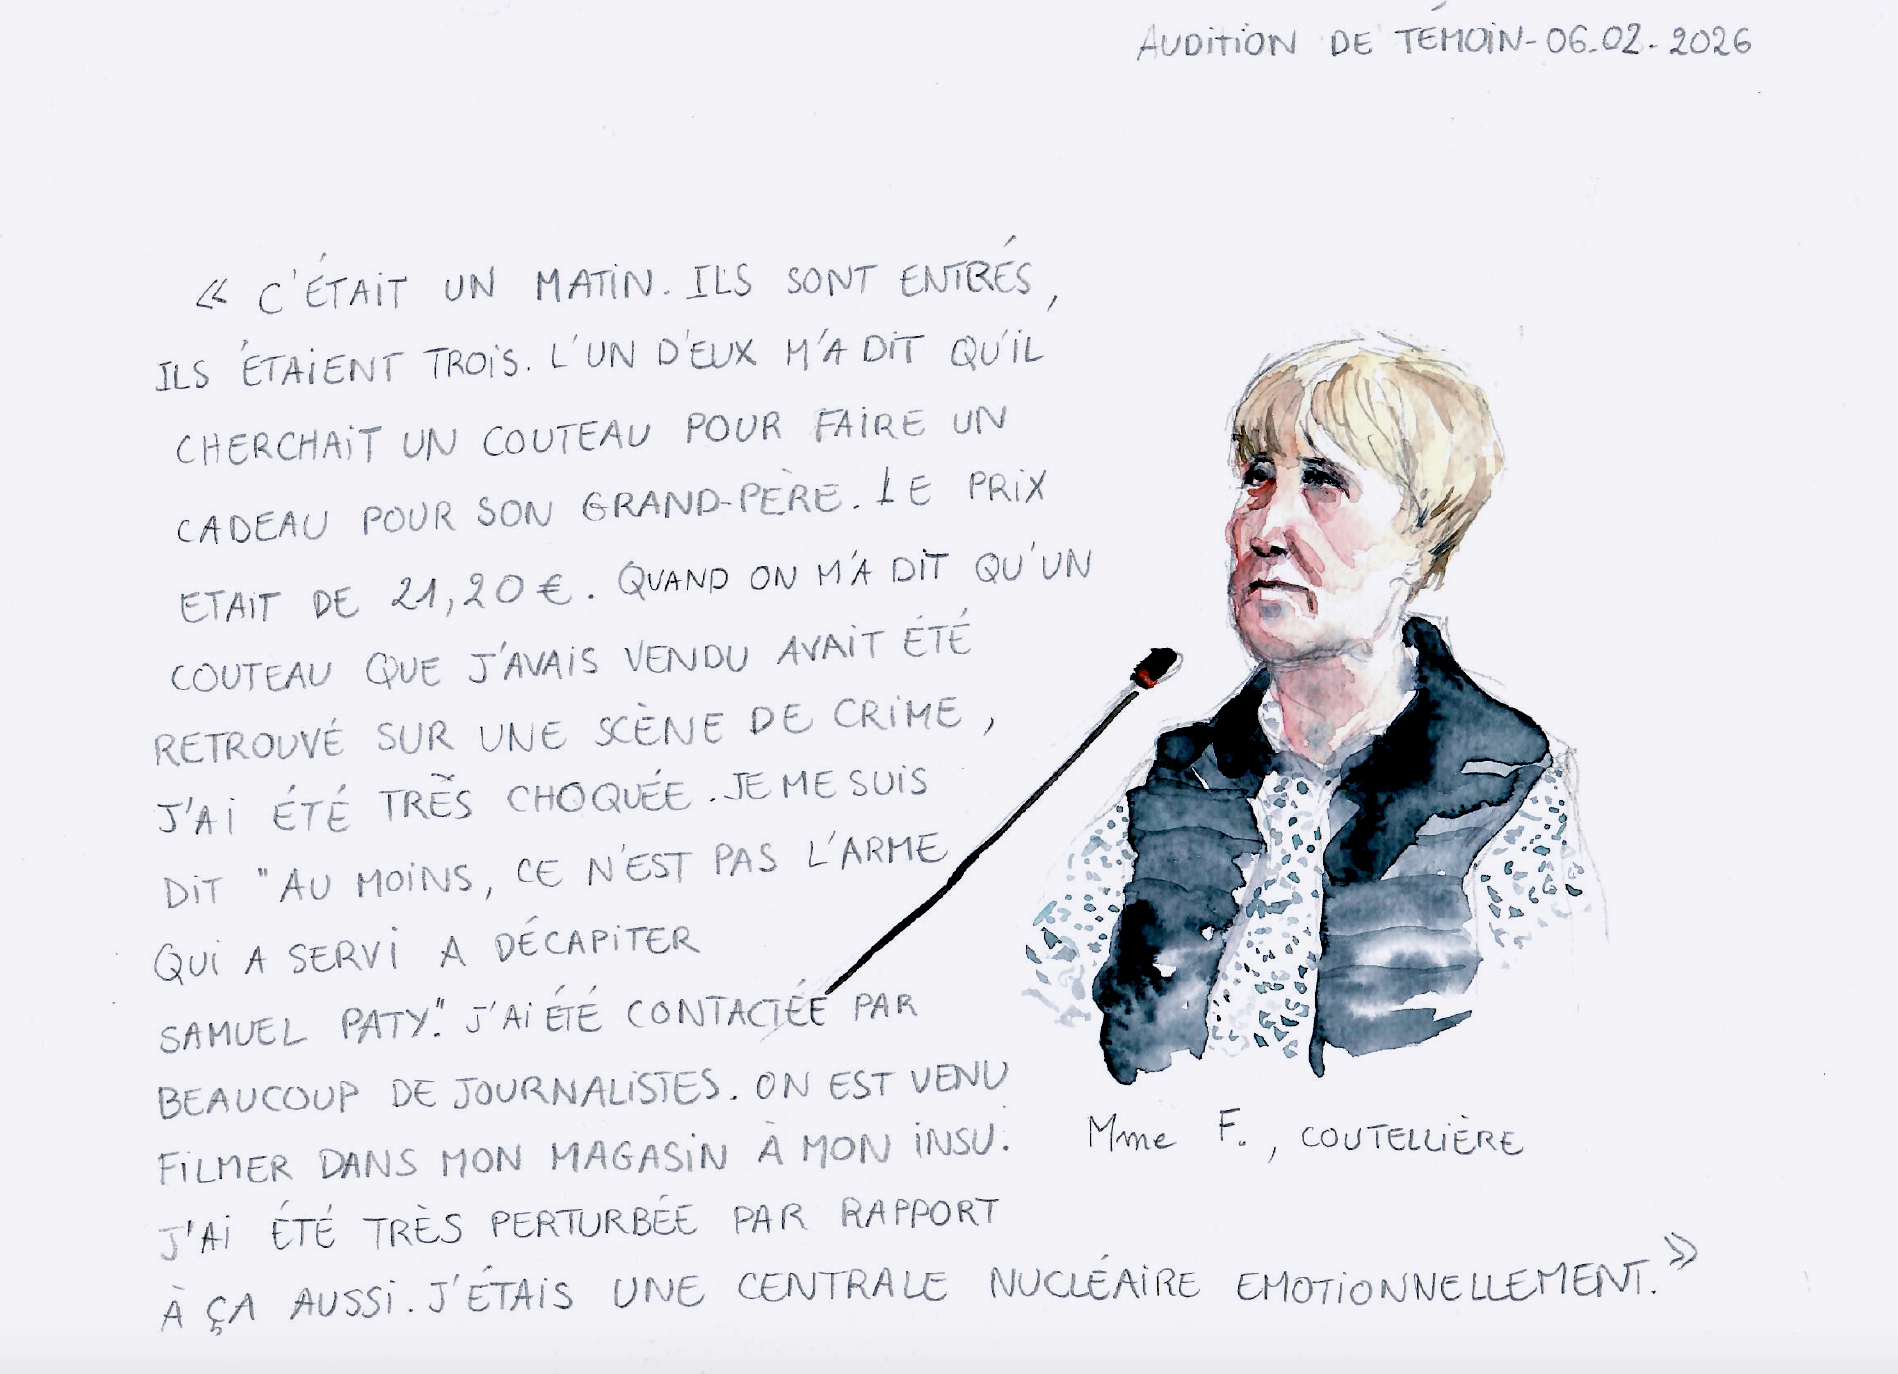 AUDITION DE TÉMOIN-06.02.2026
« C'ÉTAIT UN MATIN. ILS SONT ENTRÉS,
ILS ÉTAIENT TROIS. L'UN D'EUX M'A DIT QU'IL
CHERCHAIT UN COUTEAU POUR FAIRE UN
CADEAU POUR SON GRAND-PÈRE. LE PRIX
ETAIT DE 21,20 €. QUAND ON M'A DIT QU'UN
COUTEAU QUE J'AVAIS VENDU AVAIT ÉTÉ
RETROUVÉ SUR UNE SCÈNE DE CRIME,
J'AI ÉTÉ TRÈS CHOQUÉE. JE ME SUIS
DIT "AU MOINS, CE N'EST PAS L'ARME
QUI A SERVI A DÉCAPITER
SAMUEL PATY." J'AI ÉTÉ CONTACTÉE PAR
BEAUCOUP DE JOURNALISTES. ON EST VENU
FILMER DANS MON MAGASIN À MON INSU.
J'AI ÉTÉ TRÈS PERTURBÉE PAR RAPPORT
À ÇA AUSSI. J'ÉTAIS UNE CENTRALE NUCLÉAIRE EMOTIONNELLEMENT. »
Mme F., COUTELLIÈRE